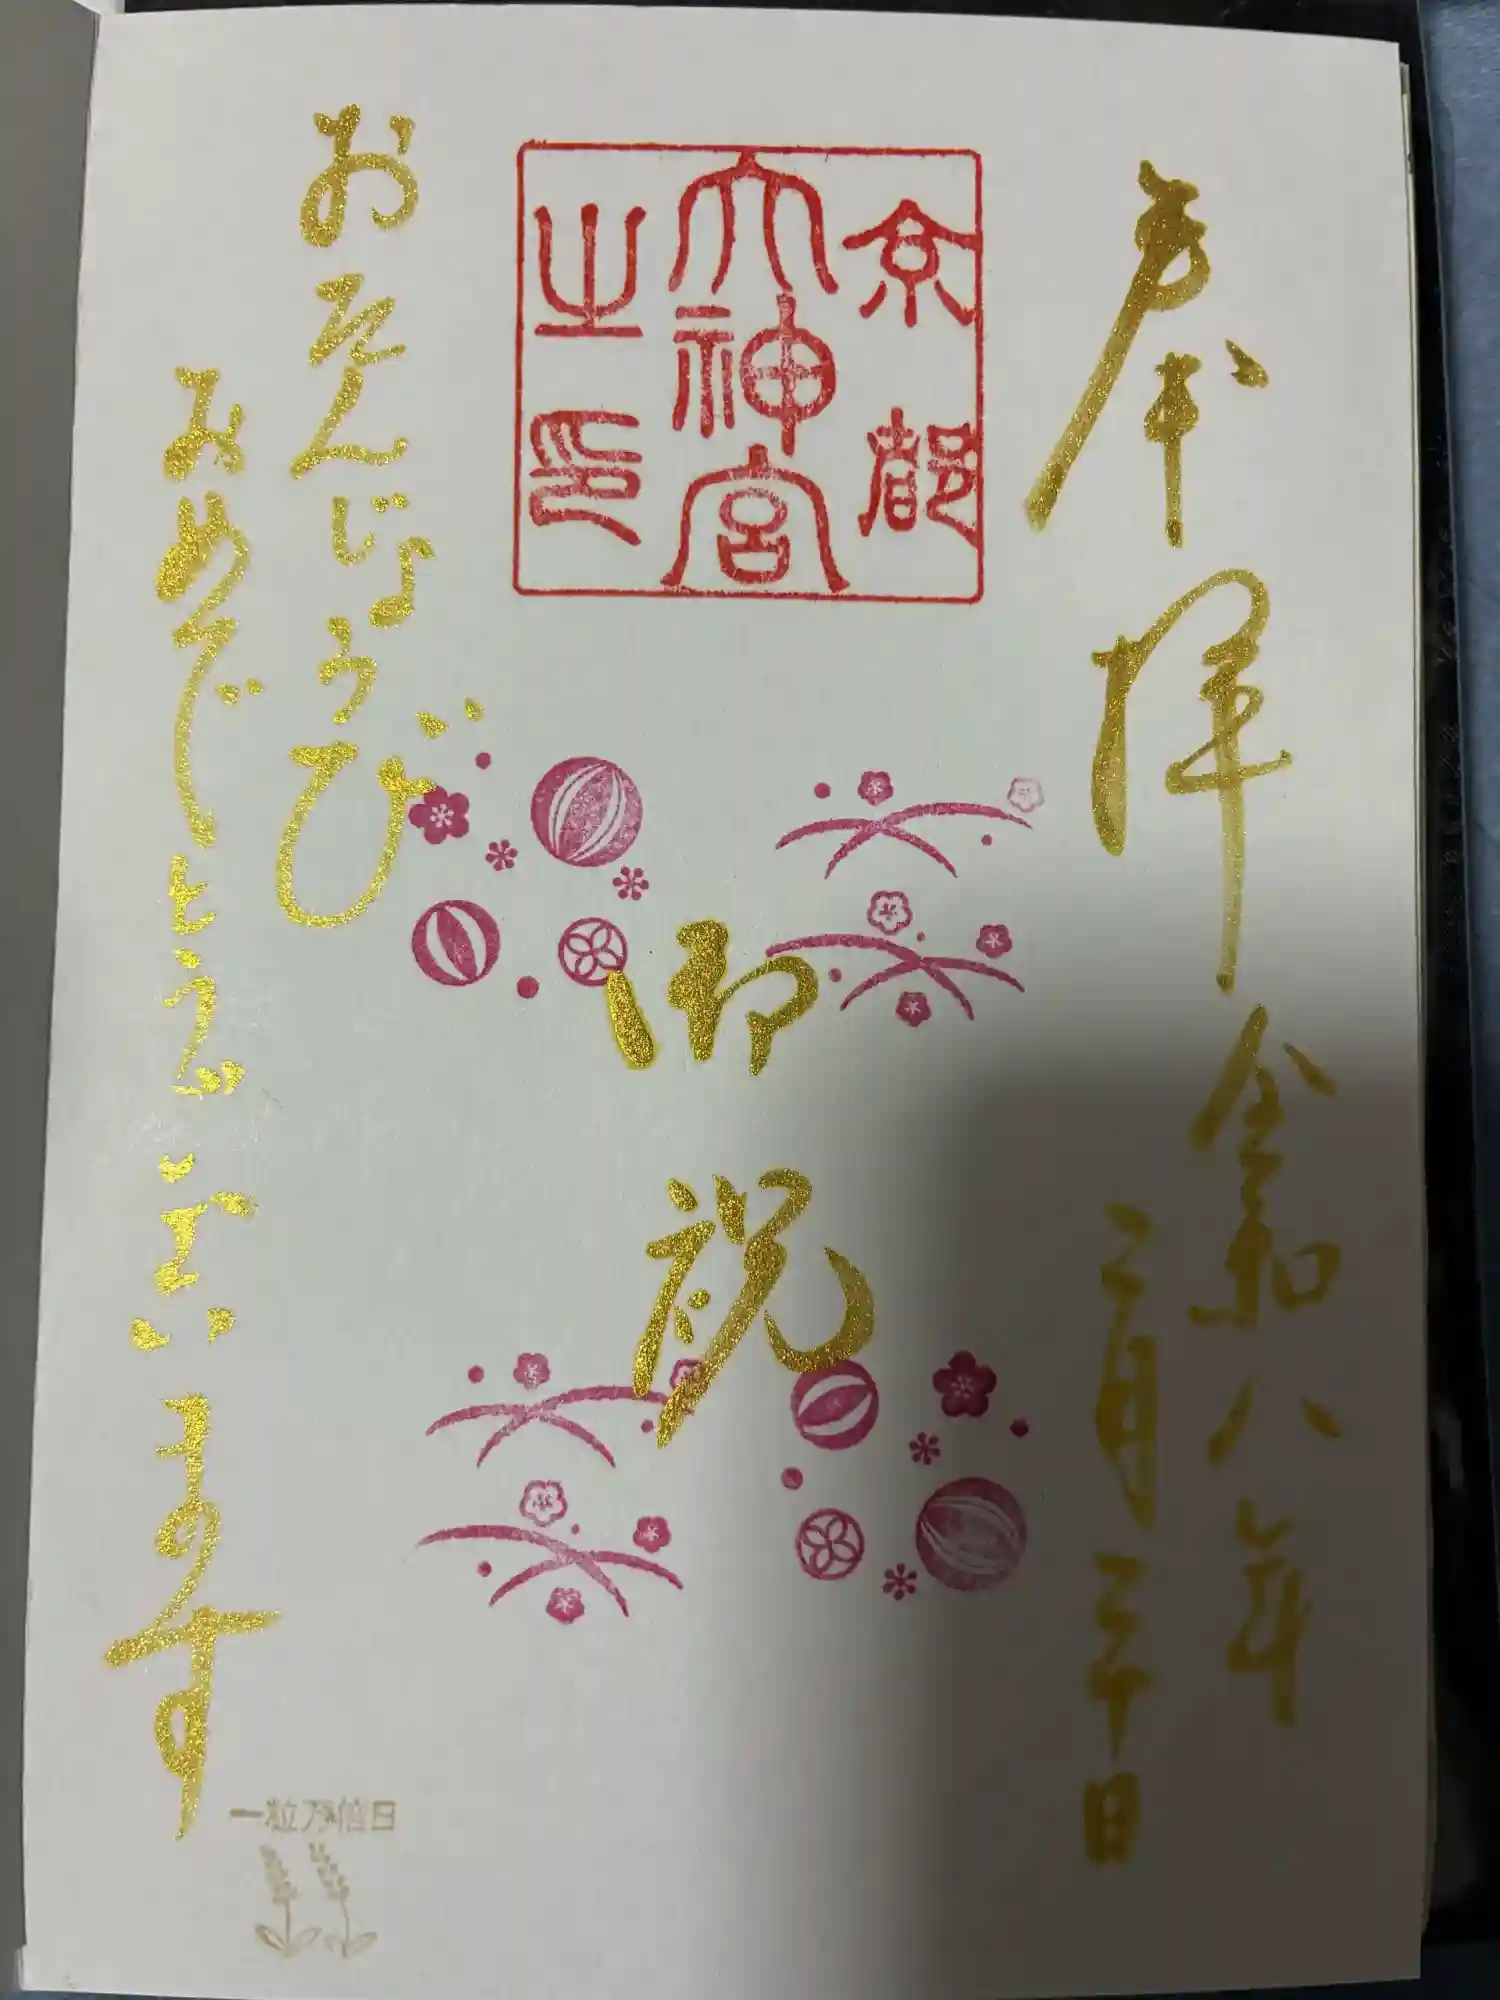 奉拝
令和八年
二月二十日
京都
大神宮
之印
御祝
おたんじょうび
おめでとうございます
一粒万倍日